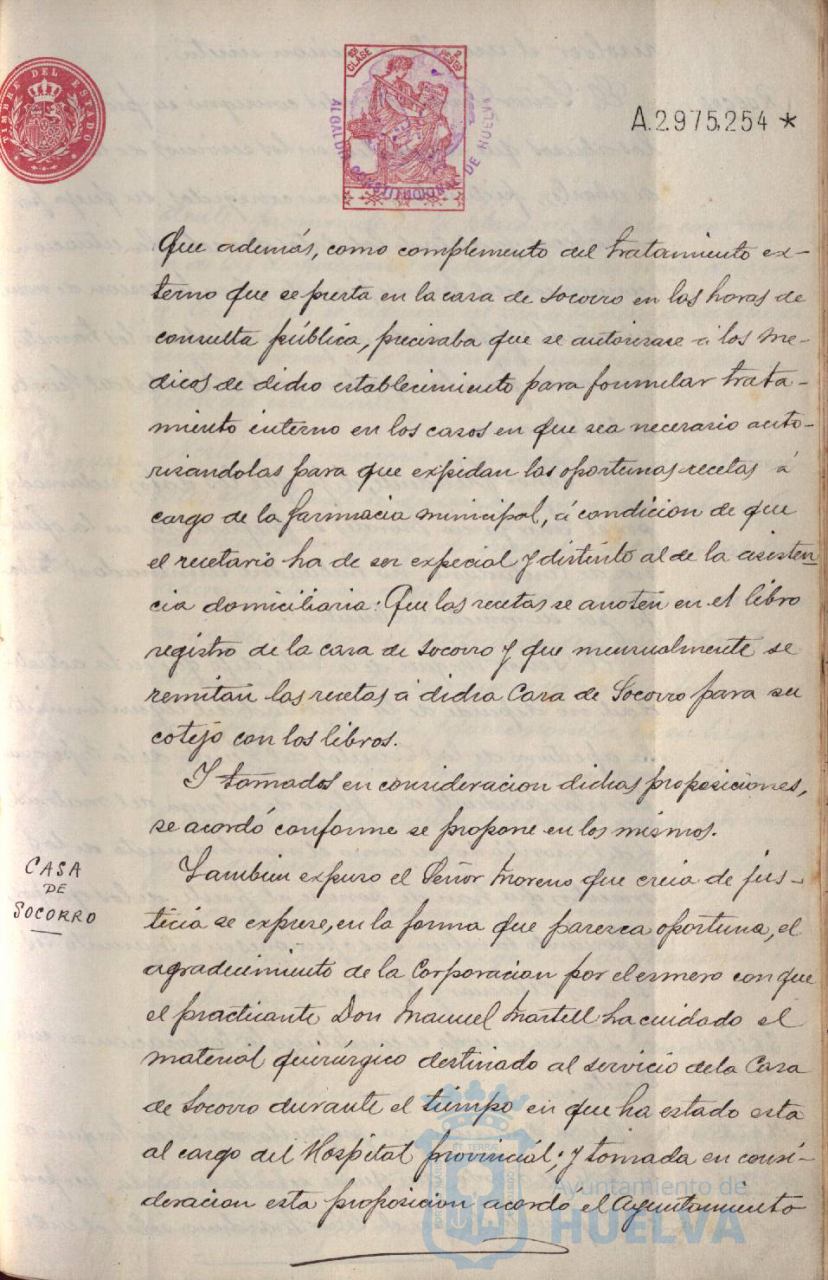 TIMBRE DEL ESTADO
CLASE
2
ALCALDIA CONSTITUCIONAL DE HUELVA
A.2.975,254 *
Que además, como complemento del tratamiento ex-
terno que se presta en la casa de socorro en las horas de
consulta pública, precisaba que se autorisase á los me-
dicos de dicho establecimiento para formular trata-
miento interno en los casos en que sea necesario auto-
risandolas para que expidan las oportunas recetas á
cargo de la farmacia municipal, á condicion de que
el recetario ha de ser expecial y distinto al de la asisten
cia domiciliaria: Que las recetas se anoten en el libro
registro de la casa de socorro y que mensualmente se
remitan las recetas á dicha Casa de Socorro para su
cotejo con los libros.
Y tomados en consideracion dichas proposiciones,
se acordó conforme se propone en los mismos.
CASA
DE
SOCORRO
Tambien expuso el Señor Moreno que creia de jus-
ticia se exprese, en la forma que paresca oportuna, el
agradecimiento de la Corporacion por el esmero con que
el practicante Don Manuel Martell ha cuidado el
material quirúrgico destinado al servicio dela Casa
de Socorro durante el tiempo en que ha estado esta
al cargo del Hospital provincial; y tomada en consi-
deracion esta proposicion acordo el Ayuntamiento
Ayuntamiento de
HUELVA